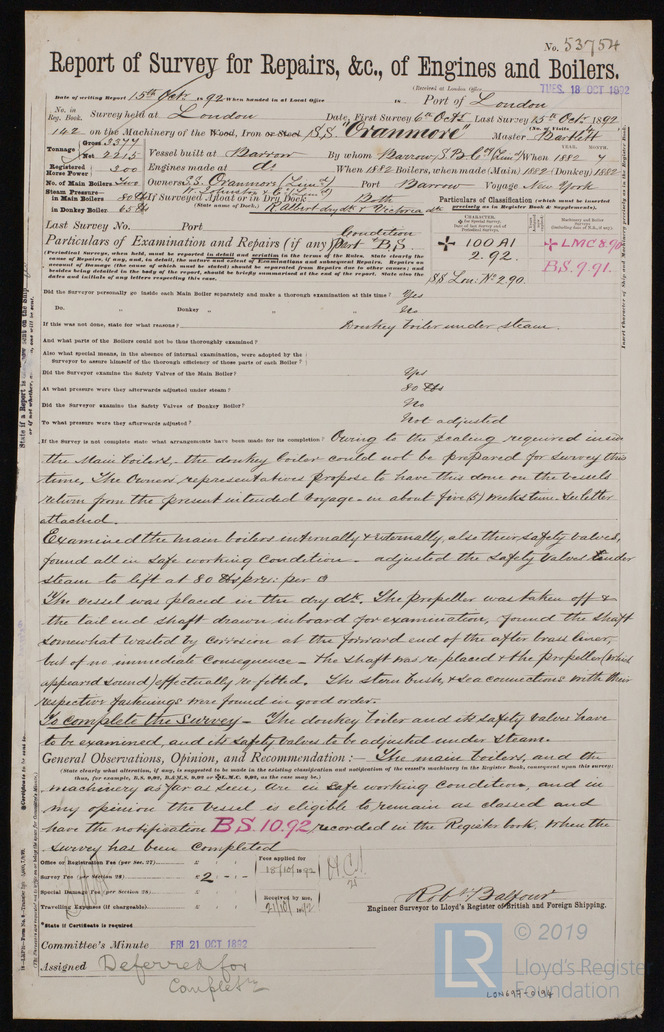 No. 53754
Report of Survey for Repairs, &c., of Engines and Boilers.
(Received at London Office TUES. 18 OCT 1892
Date of writing Report 15th Octr 1892 When handed in at Local Office 18 Port of London
No. in Reg. Book. Survey held at London Date, First Survey 6th Octr Last Survey 15th Octr 1892
(No. of Visits
142 on the Machinery of the Wood, Iron or Steel S.S. "Oranmore" Master Bartlett
Tonnage Gross 3377 Net 2215 Vessel built at Barrow By whom Barrow S.B. Co. (Lim'd) When 1882 7
YEAR. MONTH.
Registered Horse Power 300 Engines made at do When 1882 Boilers, when made (Main) 1882 (Donkey) 1882
No. of Main Boilers Two Owners S.S. Oranmore (Lim'd) Port Barrow Voyage New York
Steam Pressure in Main Boilers 80 lbs If Surveyed Afloat or in Dry Dock Both
in Donkey Boiler 65 lbs (State name of Dock.) R. Albert dry dk & Victoria dk
Particulars of Classification (which must be inserted precisely as in Register Book & Supplements).
Last Survey No. Port
Particulars of Examination and Repairs (if any) Condition Part B.S.
CHARACTER.
100 A1 2.92.
LMC 8.90
B.S. 9.91.
SS Lon. No 2.90.
(Periodical Surveys, when held, must be reported in detail and seriatim in the terms of the Rules. State clearly the
Did the Surveyor personally go inside each Main Boiler separately and make a thorough examination at this time? Yes
Do. " Donkey " " " No
If this was not done, state for what reasons? Donkey boiler under steam.
And what parts of the Boilers could not be thus thoroughly examined?
Also what special means, in the absence of internal examination, were adopted by the
Surveyor to assure himself of the thorough efficiency of those parts of each Boiler?
Did the Surveyor examine the Safety Valves of the Main Boiler? Yes
At what pressure were they afterwards adjusted under steam? 80 lbs
Did the Surveyor examine the Safety Valves of Donkey Boiler? No
To what pressure were they afterwards adjusted? Not adjusted
If the Survey is not complete state what arrangements have been made for its completion? Owing to the scaling required inside
the Main boilers, the donkey boiler could not be prepared for survey this
time, The Owners representatives propose to have this done on the vessels
return from the present intended voyage - in about five (5) weeks time. See letter
attached.
Examined the main boilers internally & externally, also their safety valves,
found all in safe working condition - adjusted the safety valves under
steam to lift at 80 lbs pres: per □
The vessel was placed in the dry dk. The propeller was taken off &
the tail end shaft drawn inboard for examination, found the shaft
somewhat wasted by corrosion at the forward end of the after brass liner,
but of no immediate consequence - the shaft was replaced & the propeller (which
appeared sound) effectually re-fitted. The stern bush, & sea connections with their
respective fastenings were found in good order.
To complete the Survey - The donkey boiler and its safety valves have
to be examined, and its safety valves to be adjusted under steam.
General Observations, Opinion, and Recommendation:- The main boilers, and the
(State clearly what alteration, if any, is suggested to be made in the existing classification and notification of the vessel's machinery in the Register Book, consequent upon this survey;
machinery as far as seen, are in safe working condition, and in
my opinion the vessel is eligible to remain as classed and
have the notification B.S. 10.92 recorded in the Register book, when the
survey has been completed
Office or Registration Fee (per Sec. 27) £ : :
Survey Fee (per Section 28) £2 : - : -
Special Damage Fee (per Section 28) £ : :
Travelling Expenses (if chargeable) £ : :
Fees applied for
18/10/1892
Received by me,
21/10/1892
*State if Certificate is required
Robt Balfour
Engineer Surveyor to Lloyd's Register of British and Foreign Shipping.
Committee's Minute FRI 21 OCT 1892
Assigned Deferred for
Completn
© 2019
LR
Lloyd's Register
Foundation
LON699-0194